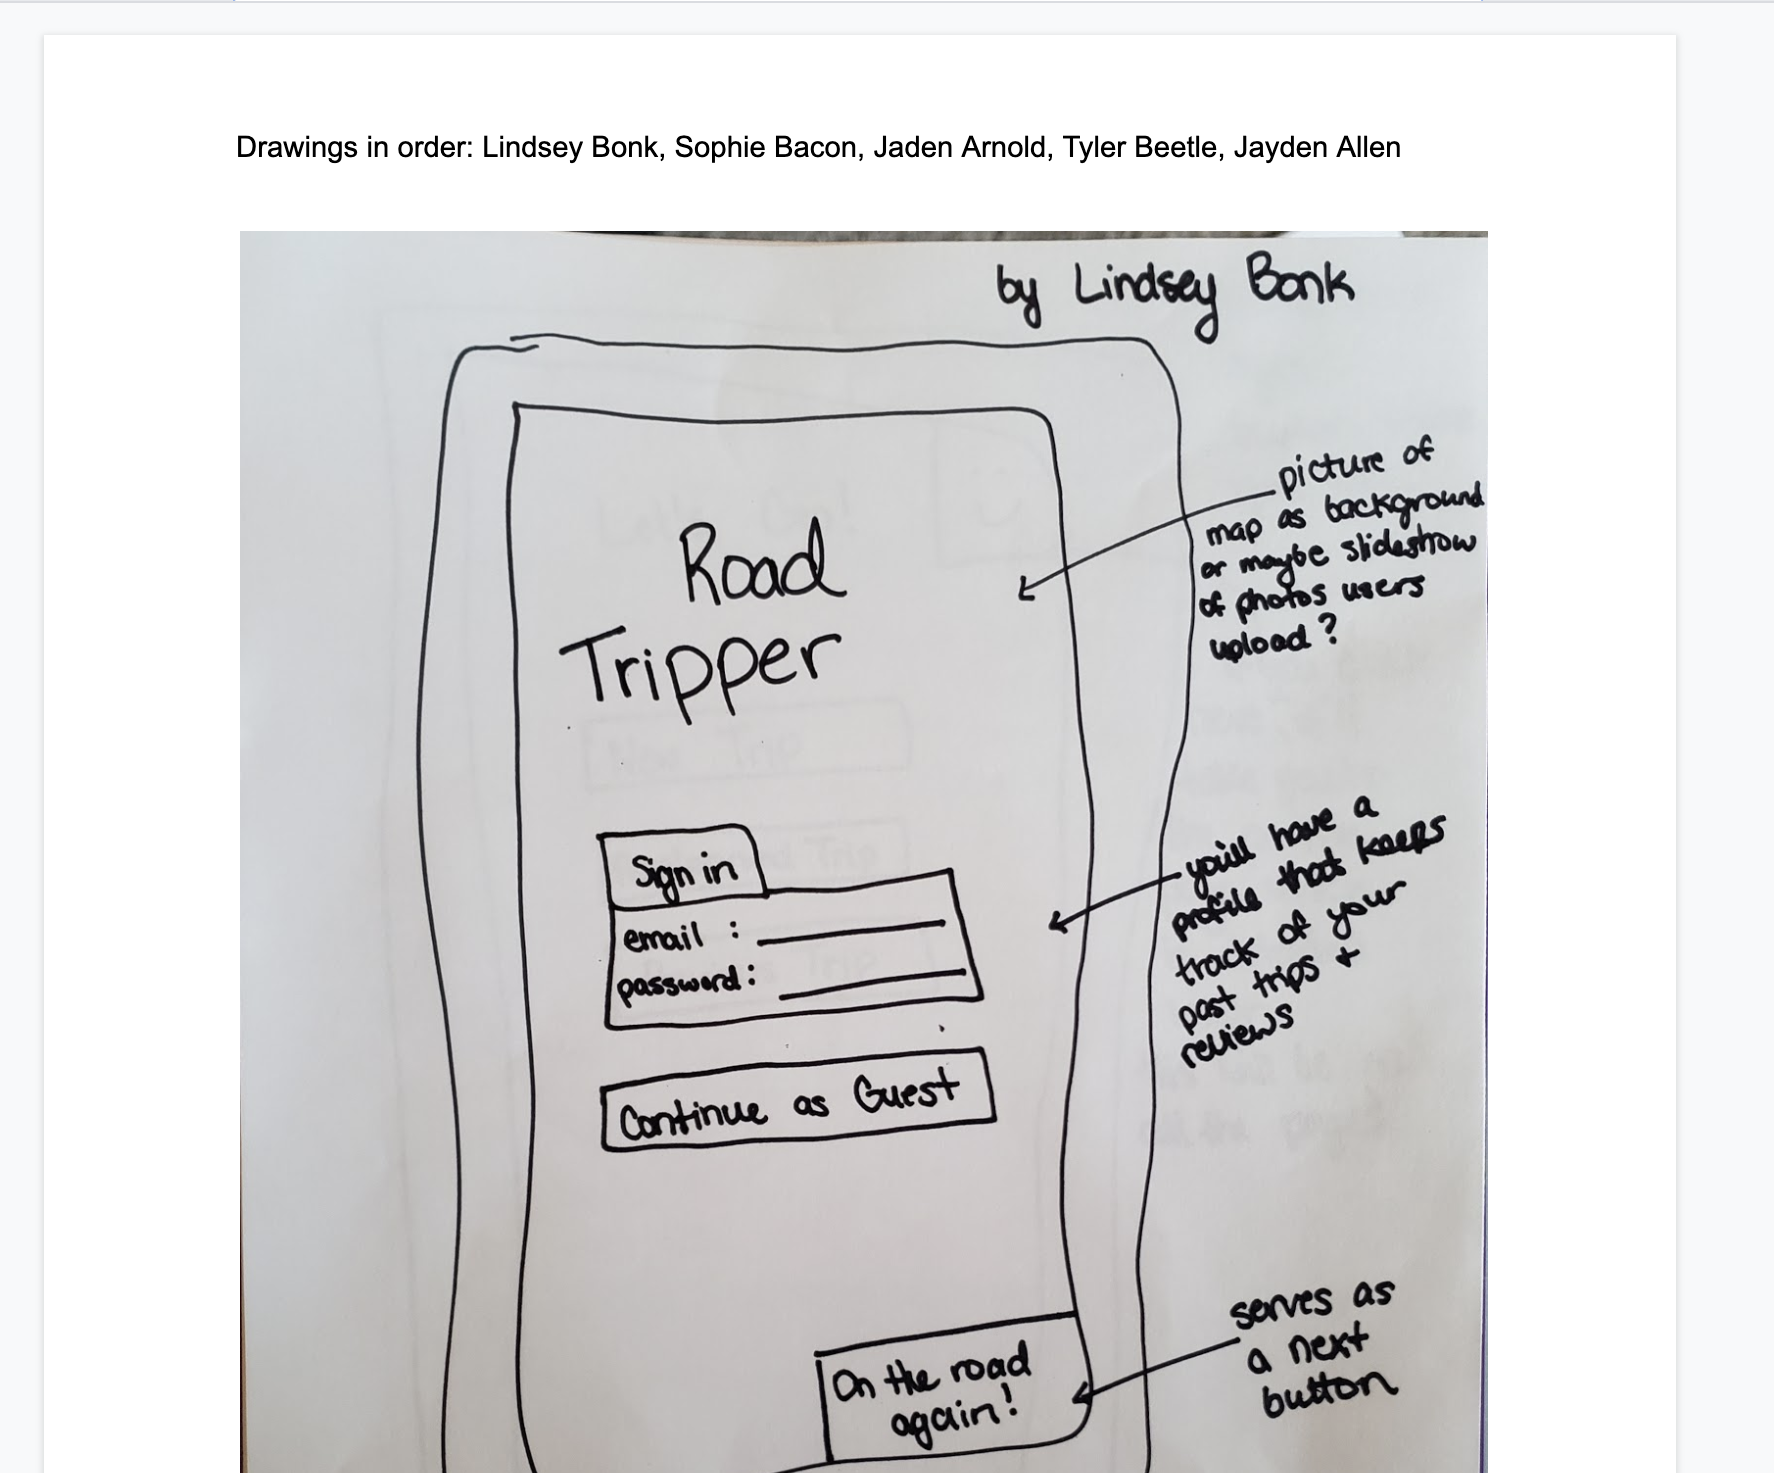 Drawings in order: Lindsey Bonk, Sophie Bacon, Jaden Arnold, Tyler Beetle, Jayden Allen
by Lindsey Bonk
Road
Tripper
picture of
map as background
or maybe slideshow
of photos users
upload?
Sign in
email :
password:
you'll have a
profile that keeps
track of your
past trips +
reviews
Continue as Guest
On the road
again!
serves as
a next
button
New Trip